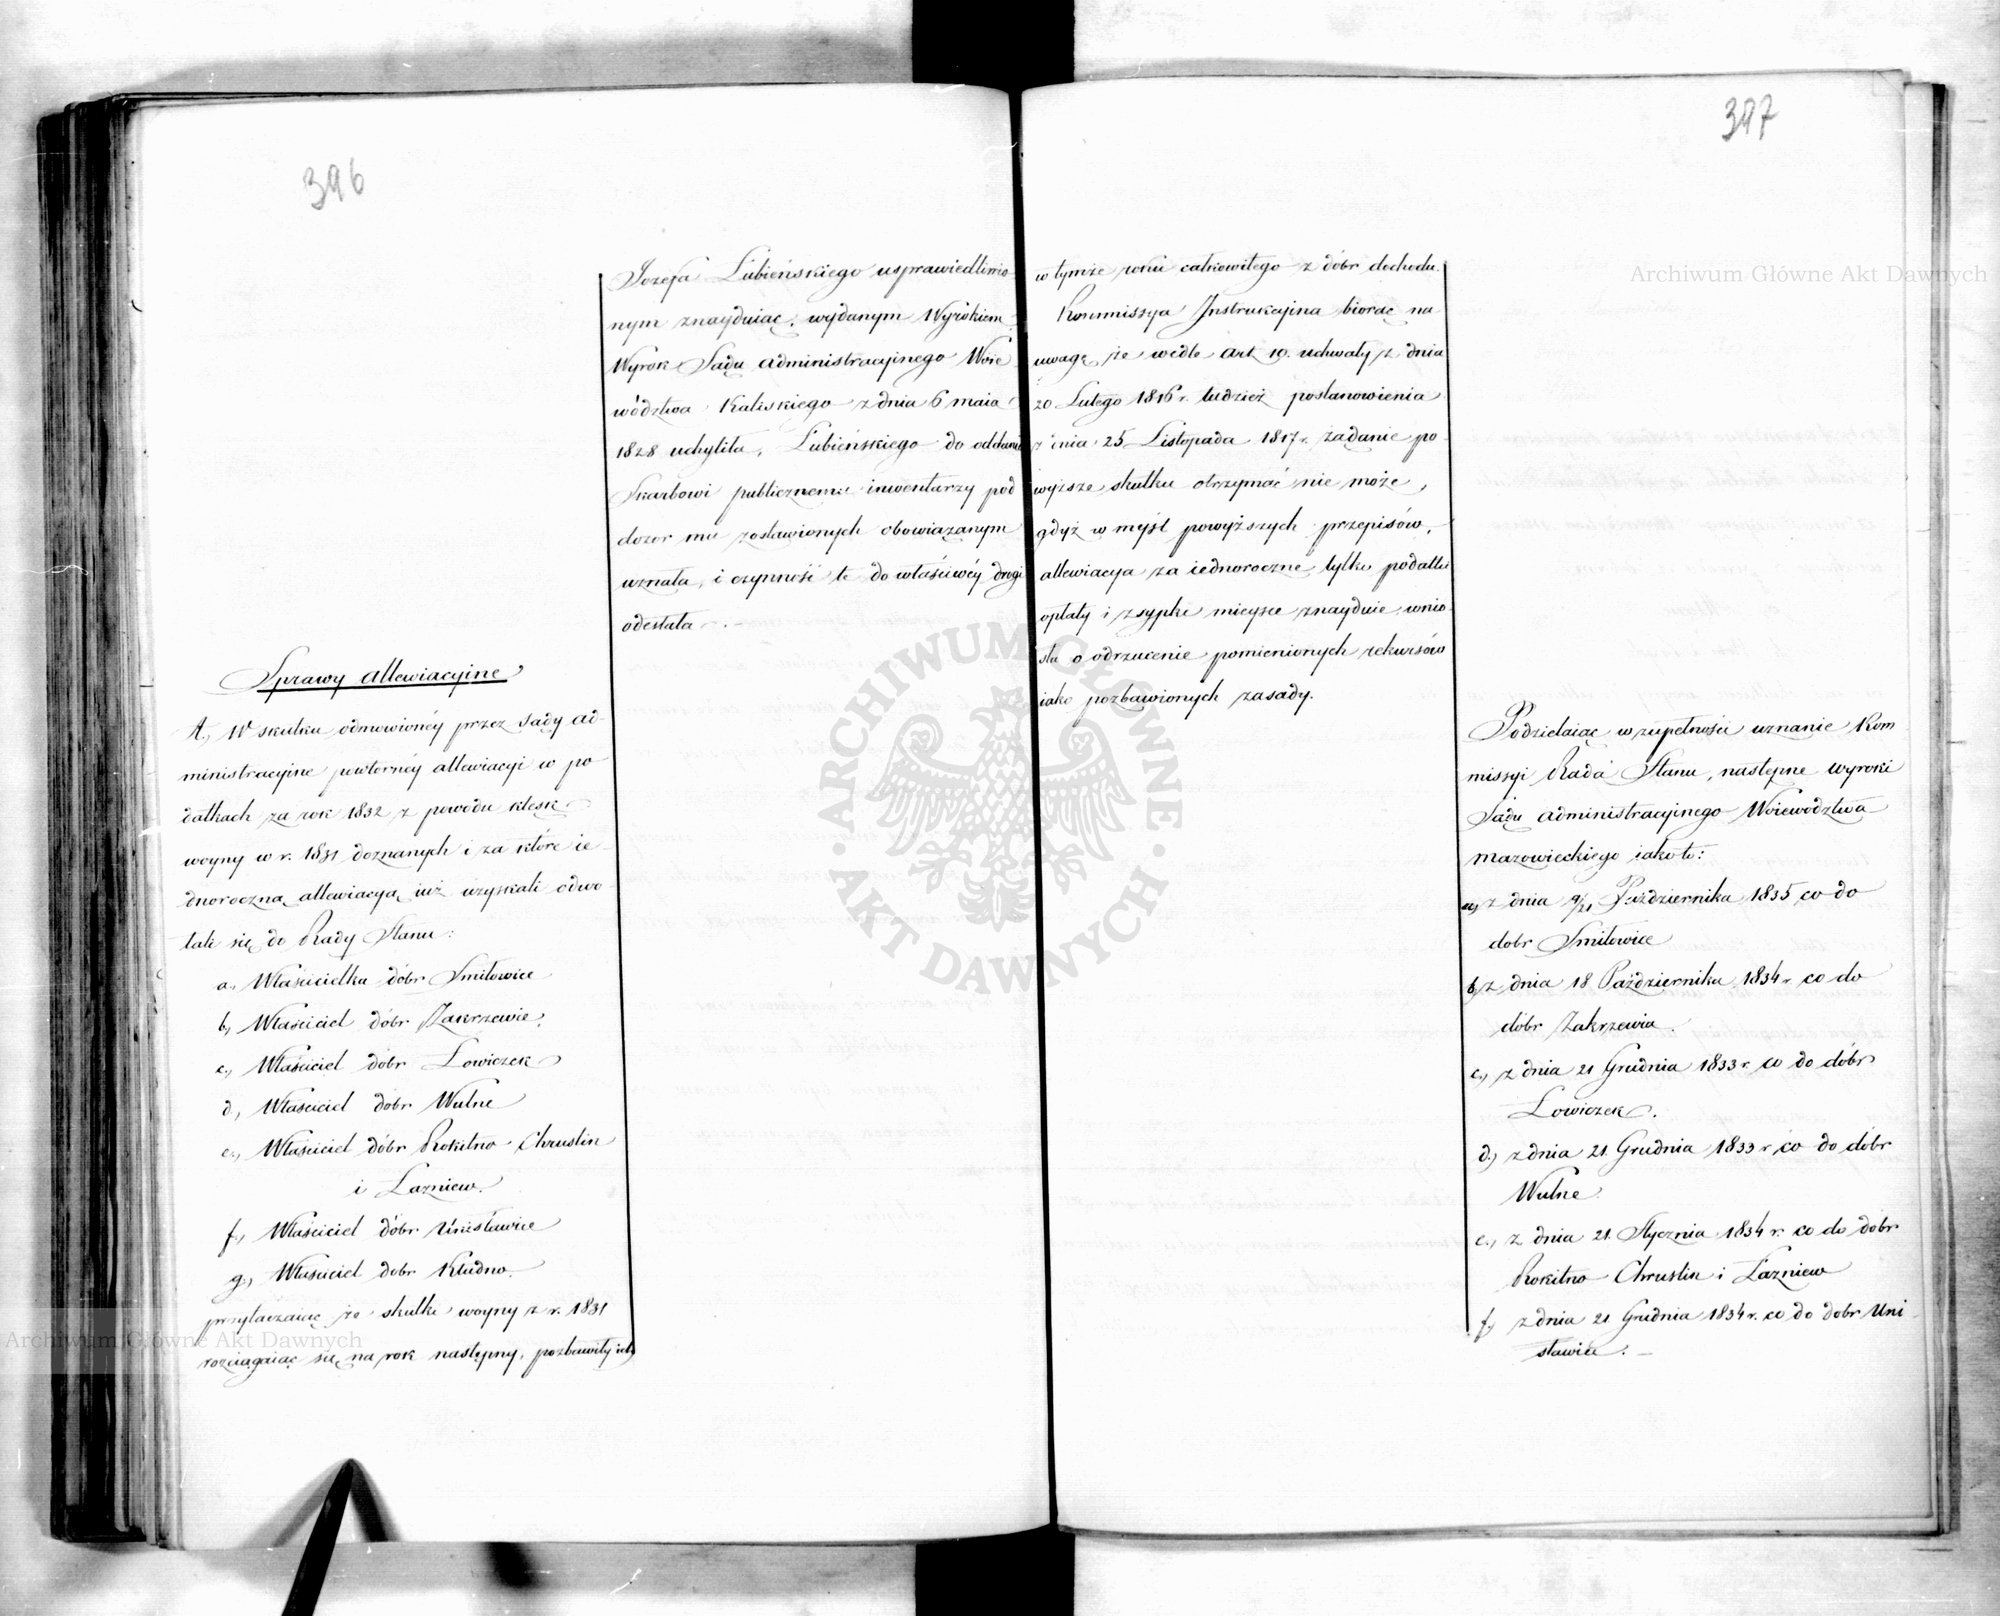 396
Jozefa Łubieńskiego usprawiedliwio-
nym znayduiąc, wydanym Wyrokiem
Wyrok Sądu administracyinego Woie
wództwa Kaliskiego z dnia 6 maia
1828 uchyliła, Łubieńskiego do oddania
Skarbowi publicznemu inwentarzy pod
dozor mu zostawionych obowiązanym
uznała, i czynność tę do właściwéy drogi
odesłała.
Sprawy allewiacyine
A, W skutku odmowionéy przez Sądy ad-
ministracyine powtornéy allewiacyi w po-
datkach za rok 1832 z powodu klęsk
woyny w r. 1831 doznanych i za które ie-
dnoroczną allewiacyą iuż uzyskali odwo
łali się do Rady Stanu:
a, Właścicielka dóbr Smiłowice
b, Właściciel dóbr Zakrzewie,
c, Właściciel dóbr Lowiczek
d, Właściciel dóbr Wulne
e, Właściciel dóbr Rokitno Chruslin
i Łazniew.
f, Właściciel dóbr Unisławice
g, Właściciel dobr Kłudno.
przytaczaiąc że skutki woyny z r. 1831
rozciągaiąc się na rok następny, pozbawiły ich
397
w tymże roku całkowitego z dóbr dochodu.
Kommissya Instrukcyina biorąc na
uwagę że wedle art 19. uchwały z dnia
20 Lutego 1816 r. tudzież postanowienia
z dnia 25 Listopada 1817 r. żądanie po-
wyższe skutku otrzymać nie może,
gdyż w myśl powyższych przepisów,
allewiacya za iednoroczne tylko podatki
opłaty i zsypki mieysce znayduie, wnio-
sła o odrzucenie pomienionych rekursów
iako pozbawionych zasady.
Podzielaiąc w zupełności uznanie Kom
missyi Rada Stanu, następne wyroki
Sądu administracyinego Woiewodztwa
Mazowieckiego iako to:
a, z dnia 9/21 Października 1835 co do
dobr Smiłowice
b, z dnia 18 Października 1834 r. co do
dóbr Zakrzewia.
c, z dnia 21 Grudnia 1833 r. co do dóbr
Lowiczek.
d, z dnia 21. Grudnia 1833 r co do dóbr
Wulne.
e, z dnia 21. Stycznia 1834 r. co do dobr
Rokitno Chruslin i Łazniew
f, z dnia 21 Grudnia 1834 r. co do dobr Uni
sławice.
Archiwum Główne Akt Dawnych
Archiwum Główne Akt Dawnych
· ARCHIWUM GŁÓWNE ·
AKT DAWNYCH